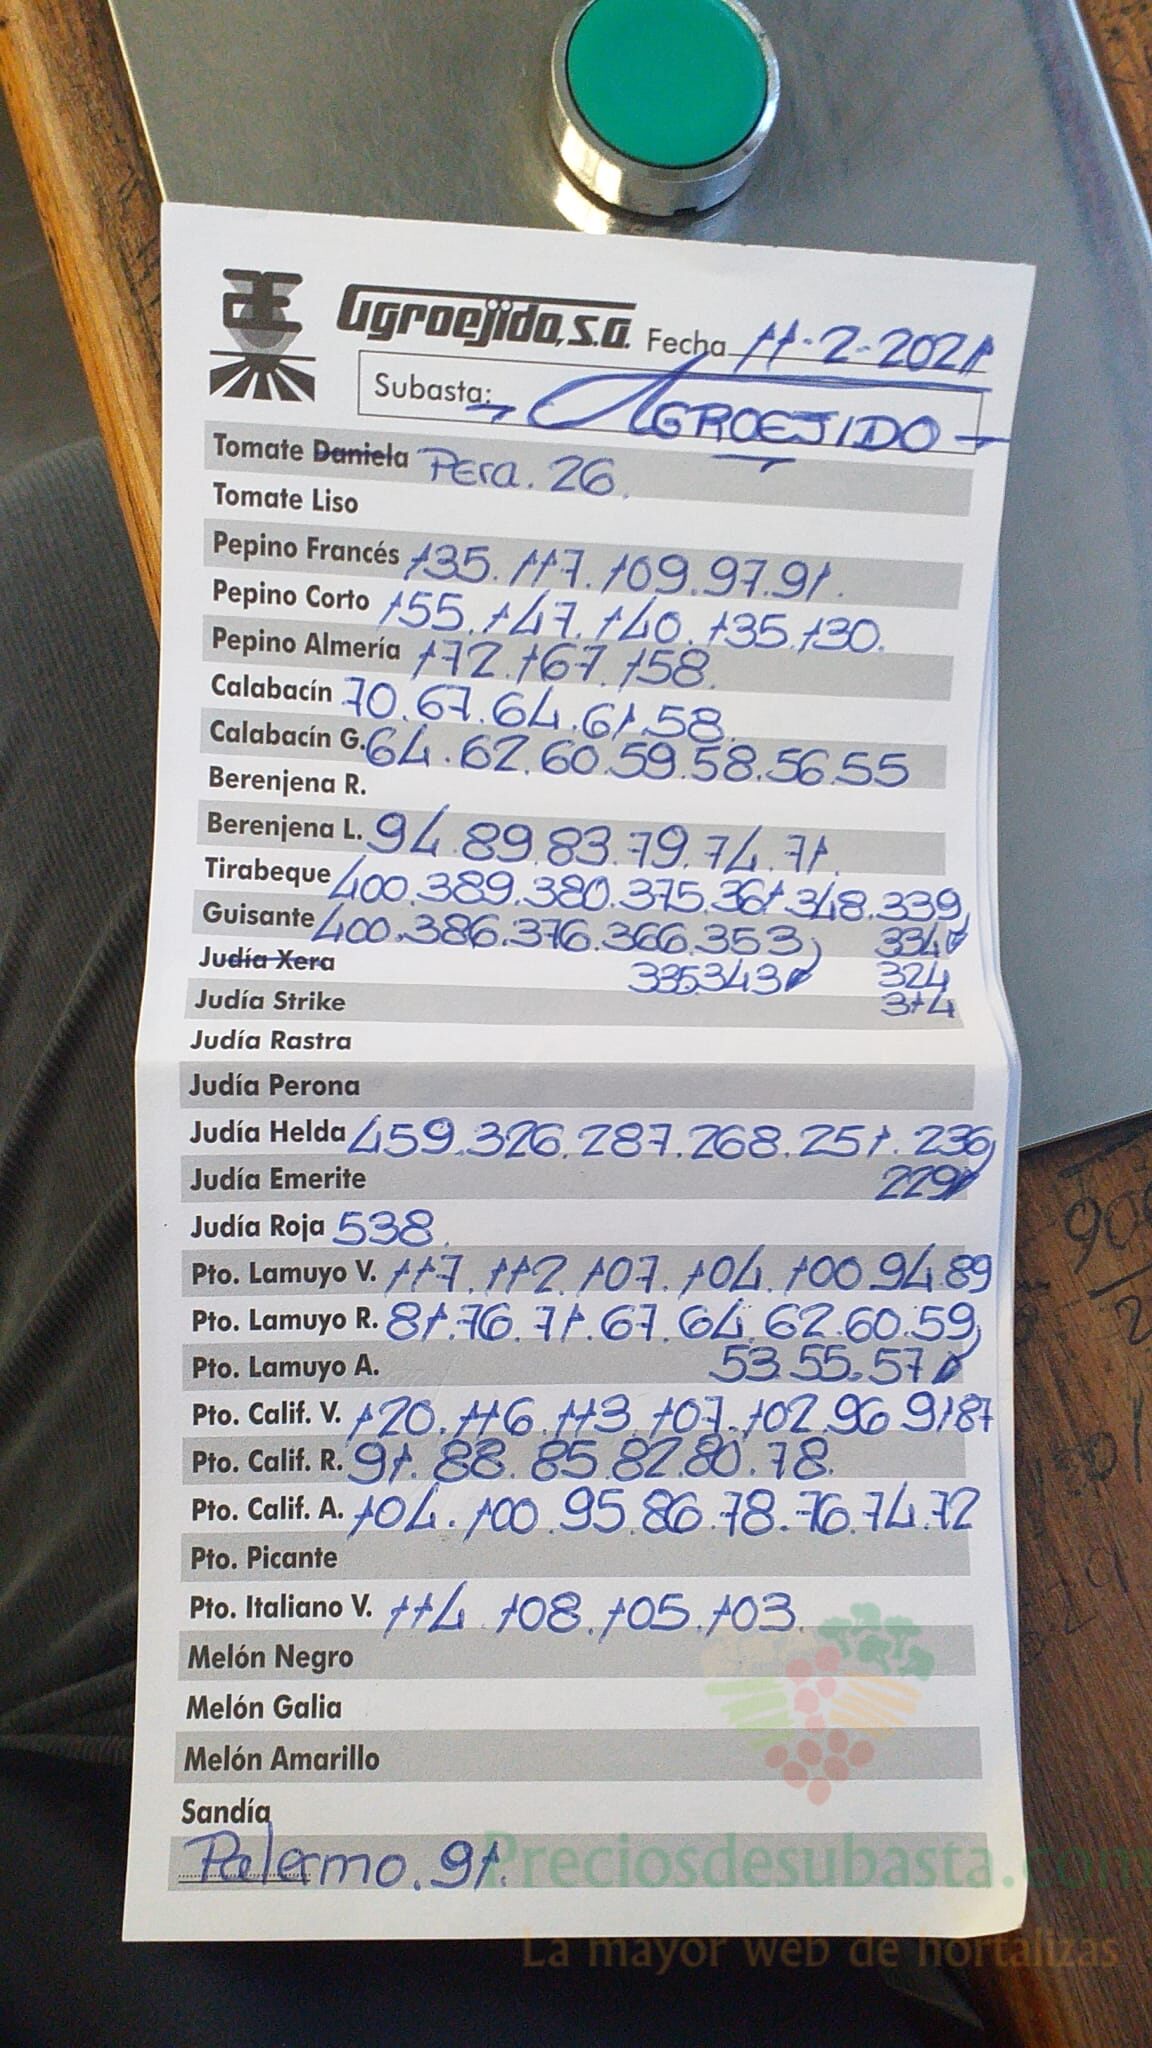 Agroejido, s.a. Fecha 11-2-2021
Subasta: AGROEJIDO
Tomate Daniela Pera. 26.
Tomate Liso
Pepino Francés 135. 117. 109. 97. 91.
Pepino Corto 155. 147. 140. 135. 130.
Pepino Almería 172. 167. 158.
Calabacín 70. 67. 64. 61. 58.
Calabacín G. 64. 62. 60. 59. 58. 56. 55
Berenjena R.
Berenjena L. 94. 89. 83. 79. 74. 71.
Tirabeque 400. 389. 380. 375. 361. 348. 339,
Guisante 400. 386. 376. 366. 353 334
Judía Xera 335.343 324
Judía Strike 314
Judía Rastra
Judía Perona
Judía Helda 459. 326. 287. 268. 251. 236
Judía Emerite 229
Judía Roja 538.
Pto. Lamuyo V. 117. 112. 107. 104. 100. 94. 89
Pto. Lamuyo R. 81. 76. 71. 67. 64. 62. 60. 59
Pto. Lamuyo A. 53. 55. 57
Pto. Calif. V. 120. 116. 113. 107. 102. 96 91 87
Pto. Calif. R. 91. 88. 85. 82. 80. 78.
Pto. Calif. A. 104. 100. 95. 86. 78. 76. 74. 72
Pto. Picante
Pto. Italiano V. 114 108. 105. 103.
Melón Negro
Melón Galia
Melón Amarillo
Sandía
Palermo. 91.
Preciosdesubasta.com
La mayor web de hortalizas